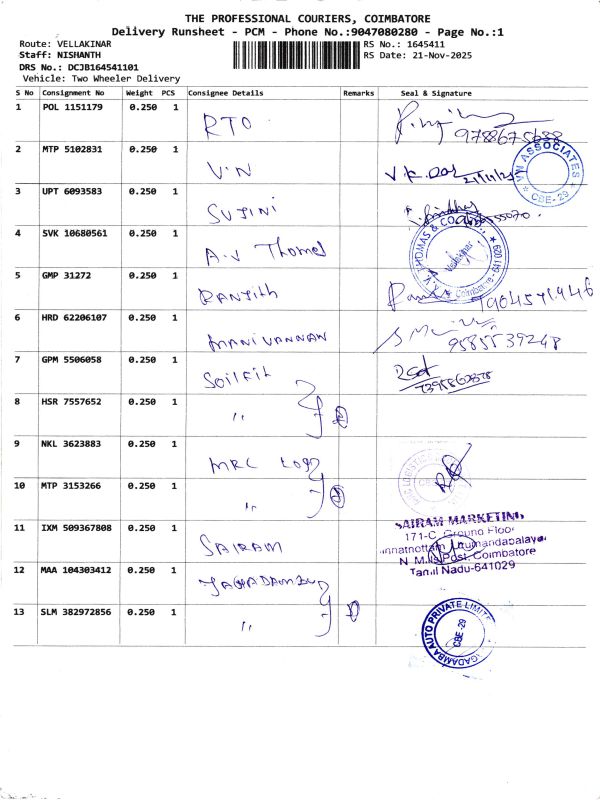 THE PROFESSIONAL COURIERS, COIMBATORE
Delivery Runsheet - PCM - Phone No.:9047080280 - Page No.:1
Route: VELLAKINAR
RS No.: 1645411
Staff: NISHANTH
RS Date: 21-Nov-2025
DRS No.: DCJB164541101
Vehicle: Two Wheeler Delivery
S No Consignment No Weight PCS Consignee Details Remarks Seal & Signature
1 POL 1151179 0.250 1 RTO
2 MTP 5102831 0.250 1 V.N
VN ASSOCIATES
CBE-29
3 UPT 6093583 0.250 1 SUJINI
4 SVK 10680561 0.250 1 A.V Thomas
A.V. THOMAS & CO
Vellakinar
Coimbatore - 641 029
5 GMP 31272 0.250 1 RANJITH
6 HRD 62206107 0.250 1 MANIVANNAN
9585539248
7 GPM 5506058 0.250 1
8 HSR 7557652 0.250 1 "
9 NKL 3623883 0.250 1 MRC
10 MTP 3153266 0.250 1 "
11 IXM 509367808 0.250 1 SAIRAM
SAIRAM MARKETING
171-C, Ground Floor
N.M.Ills Post, Coimbatore
Tamil Nadu-641029
12 MAA 104303412 0.250 1
13 SLM 382972856 0.250 1 "
JAGADAMBA AUTO PRIVATE LIMITED
CBE-29